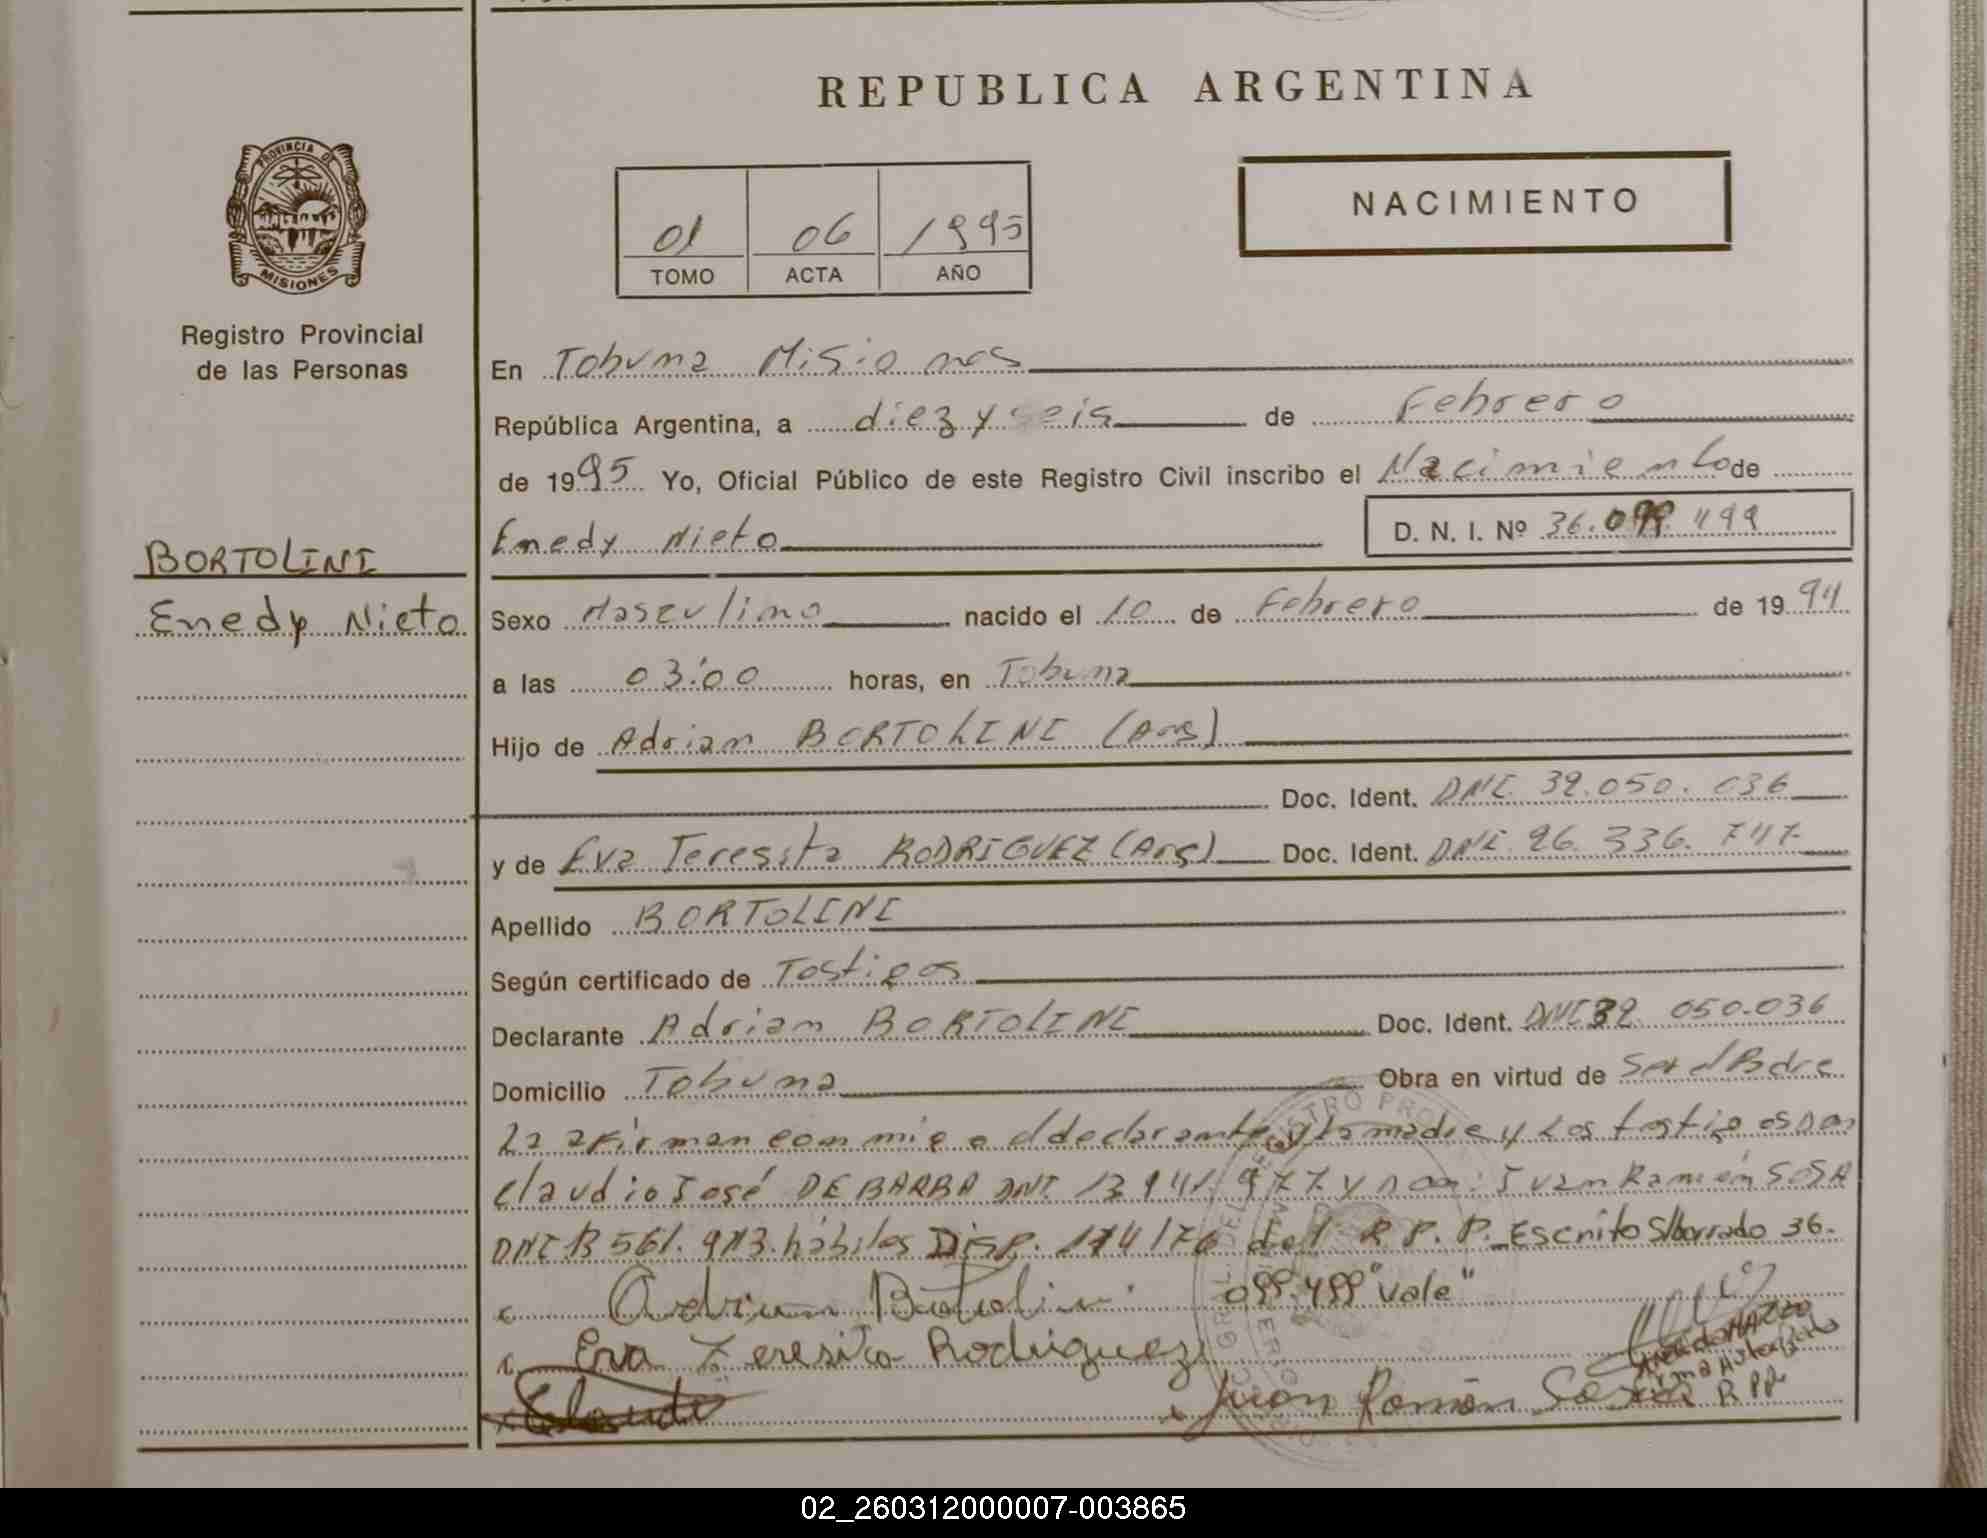 REPUBLICA ARGENTINA
PROVINCIA DE
MISIONES
Registro Provincial
de las Personas
01 06 1995
TOMO ACTA AÑO
NACIMIENTO
En Tobuna Misiones
República Argentina, a diez y seis de Febrero
de 1995 Yo, Oficial Público de este Registro Civil inscribo el Nacimiento de
Enedy Nieto D. N. I. Nº 36.099.499
BORTOLINI
Enedy Nieto
Sexo Masculino nacido el 10 de Febrero de 1994
a las 03:00 horas, en Tobuna
Hijo de Adrian BORTOLINI (Arg)
Doc. Ident. DNI 32.050.036
y de Eva Teresita RODRIGUEZ (Arg) Doc. Ident. DNI 26.336.747
Apellido BORTOLINI
Según certificado de Testigos
Declarante Adrian BORTOLINI Doc. Ident. DNI 32.050.036
Domicilio Tobuna Obra en virtud de Ser el Padre
La afirman conmigo el declarante y la madre y los testigos Don
Claudio José DE BARBA DNI. 13.941.977 y Don: Juan Ramón SOSA
DNI 13 561.983. hábiles Disp. 174/76 del R.P.P. Escrito S/borrado 36.
099.499 "Vale"
Adrian Bortolini
Eva Teresita Rodriguez
Juan Ramón Sosa
R P P
02_260312000007-003865